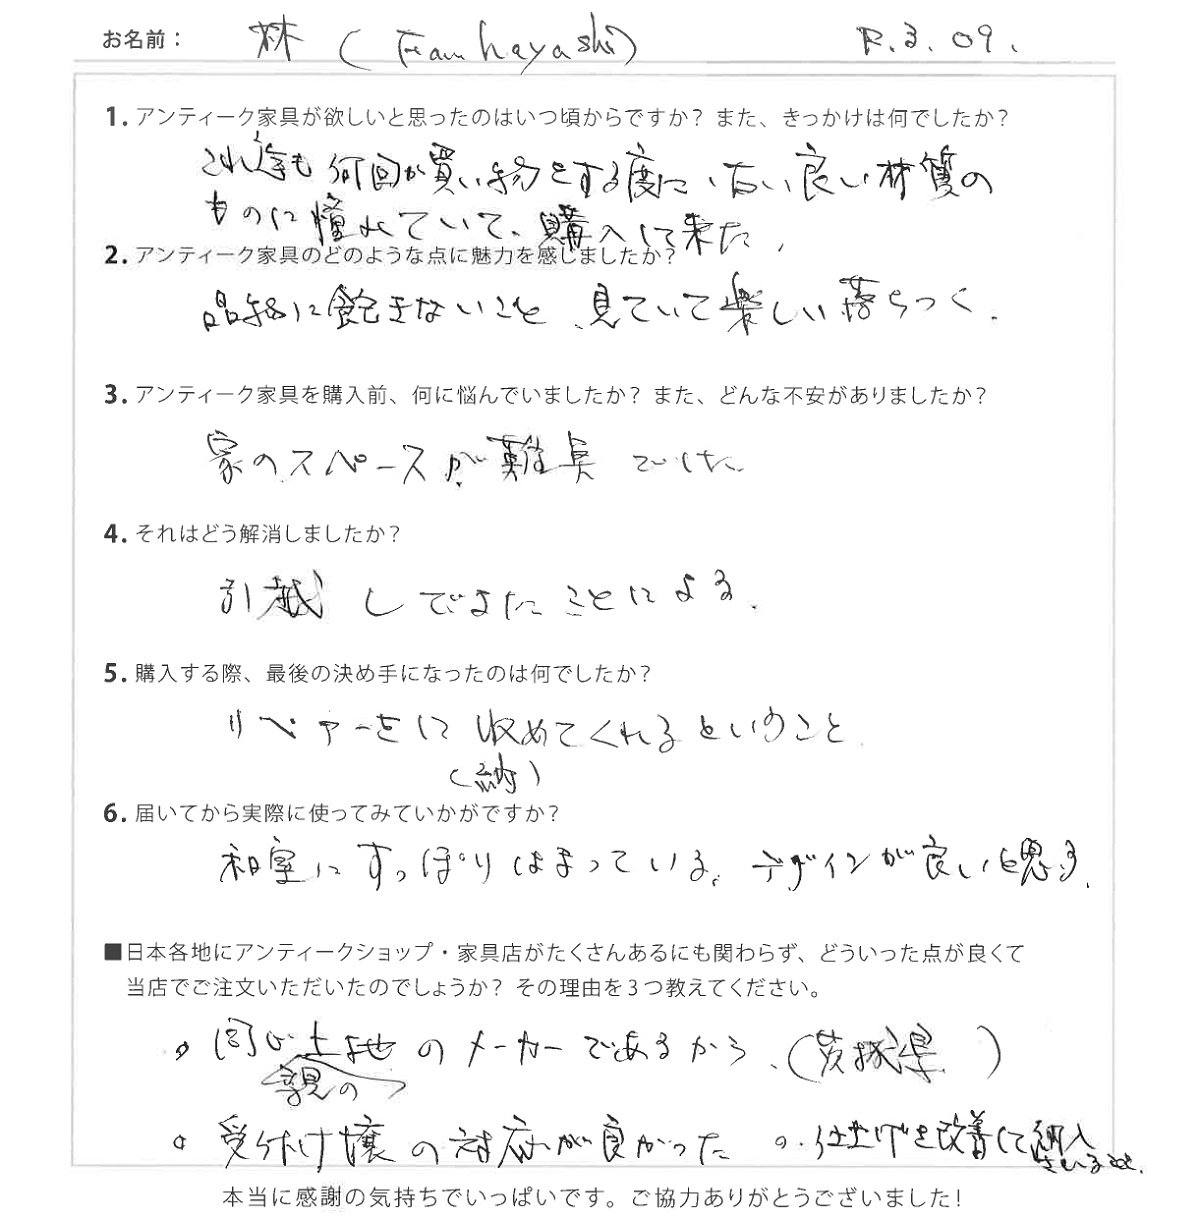 お名前： 林 ( Team hayashi) R.3.09.
1. アンティーク家具が欲しいと思ったのはいつ頃からですか？ また、きっかけは何でしたか？
これ迄も 何回か買い物をする度に、古い良い材質の
ものに憧れていて、購入して来た。
2. アンティーク家具のどのような点に魅力を感じましたか？
品格に飽きないこと、見ていて楽しい落ちつく.
3. アンティーク家具を購入前、何に悩んでいましたか？ また、どんな不安がありましたか？
家のスペースが難点でした
4. それはどう解消しましたか？
引越しできたことによる.
5. 購入する際、最後の決め手になったのは何でしたか？
リペアーをして収めてくれるということ
(納)
6. 届いてから実際に使ってみていかがですか？
和室にすっぽりはまっている. デザインが良いと思う.
■日本各地にアンティークショップ・家具店がたくさんあるにも関わらず、どういった点が良くて
当店でご注文いただいたのでしょうか？ その理由を３つ教えてください。
。同じ土地のメーカーであるから.(茨城県)
親の
。受付け嬢の対応が良かった 。仕上げを改善して納入
本当に感謝の気持ちでいっぱいです。ご協力ありがとうございました！